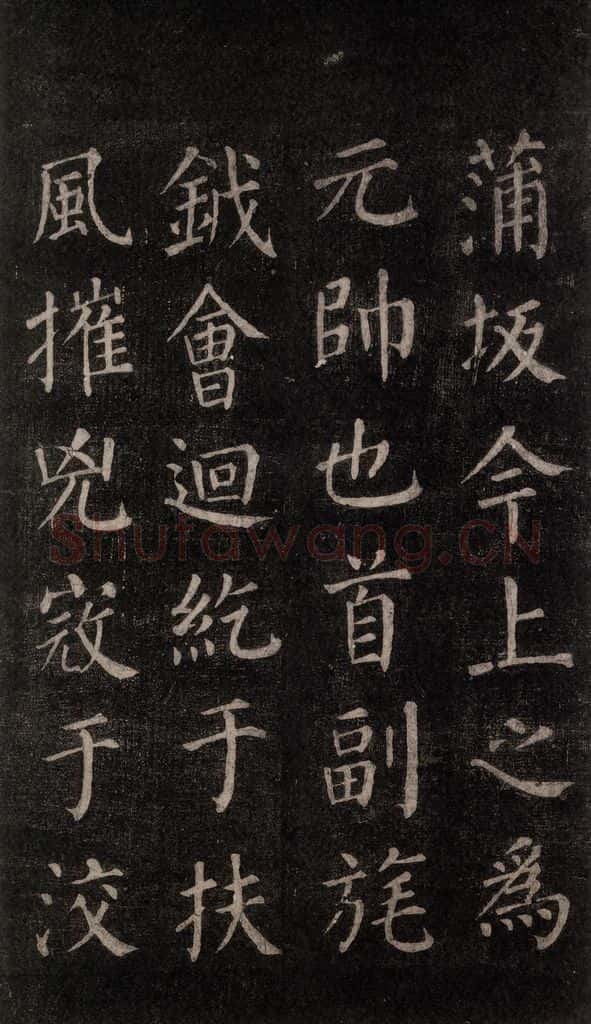 蒲坂今上之為
元帥也首副旄
鉞會迴紇于扶
風摧兇寇于洨
Shufawang.CN